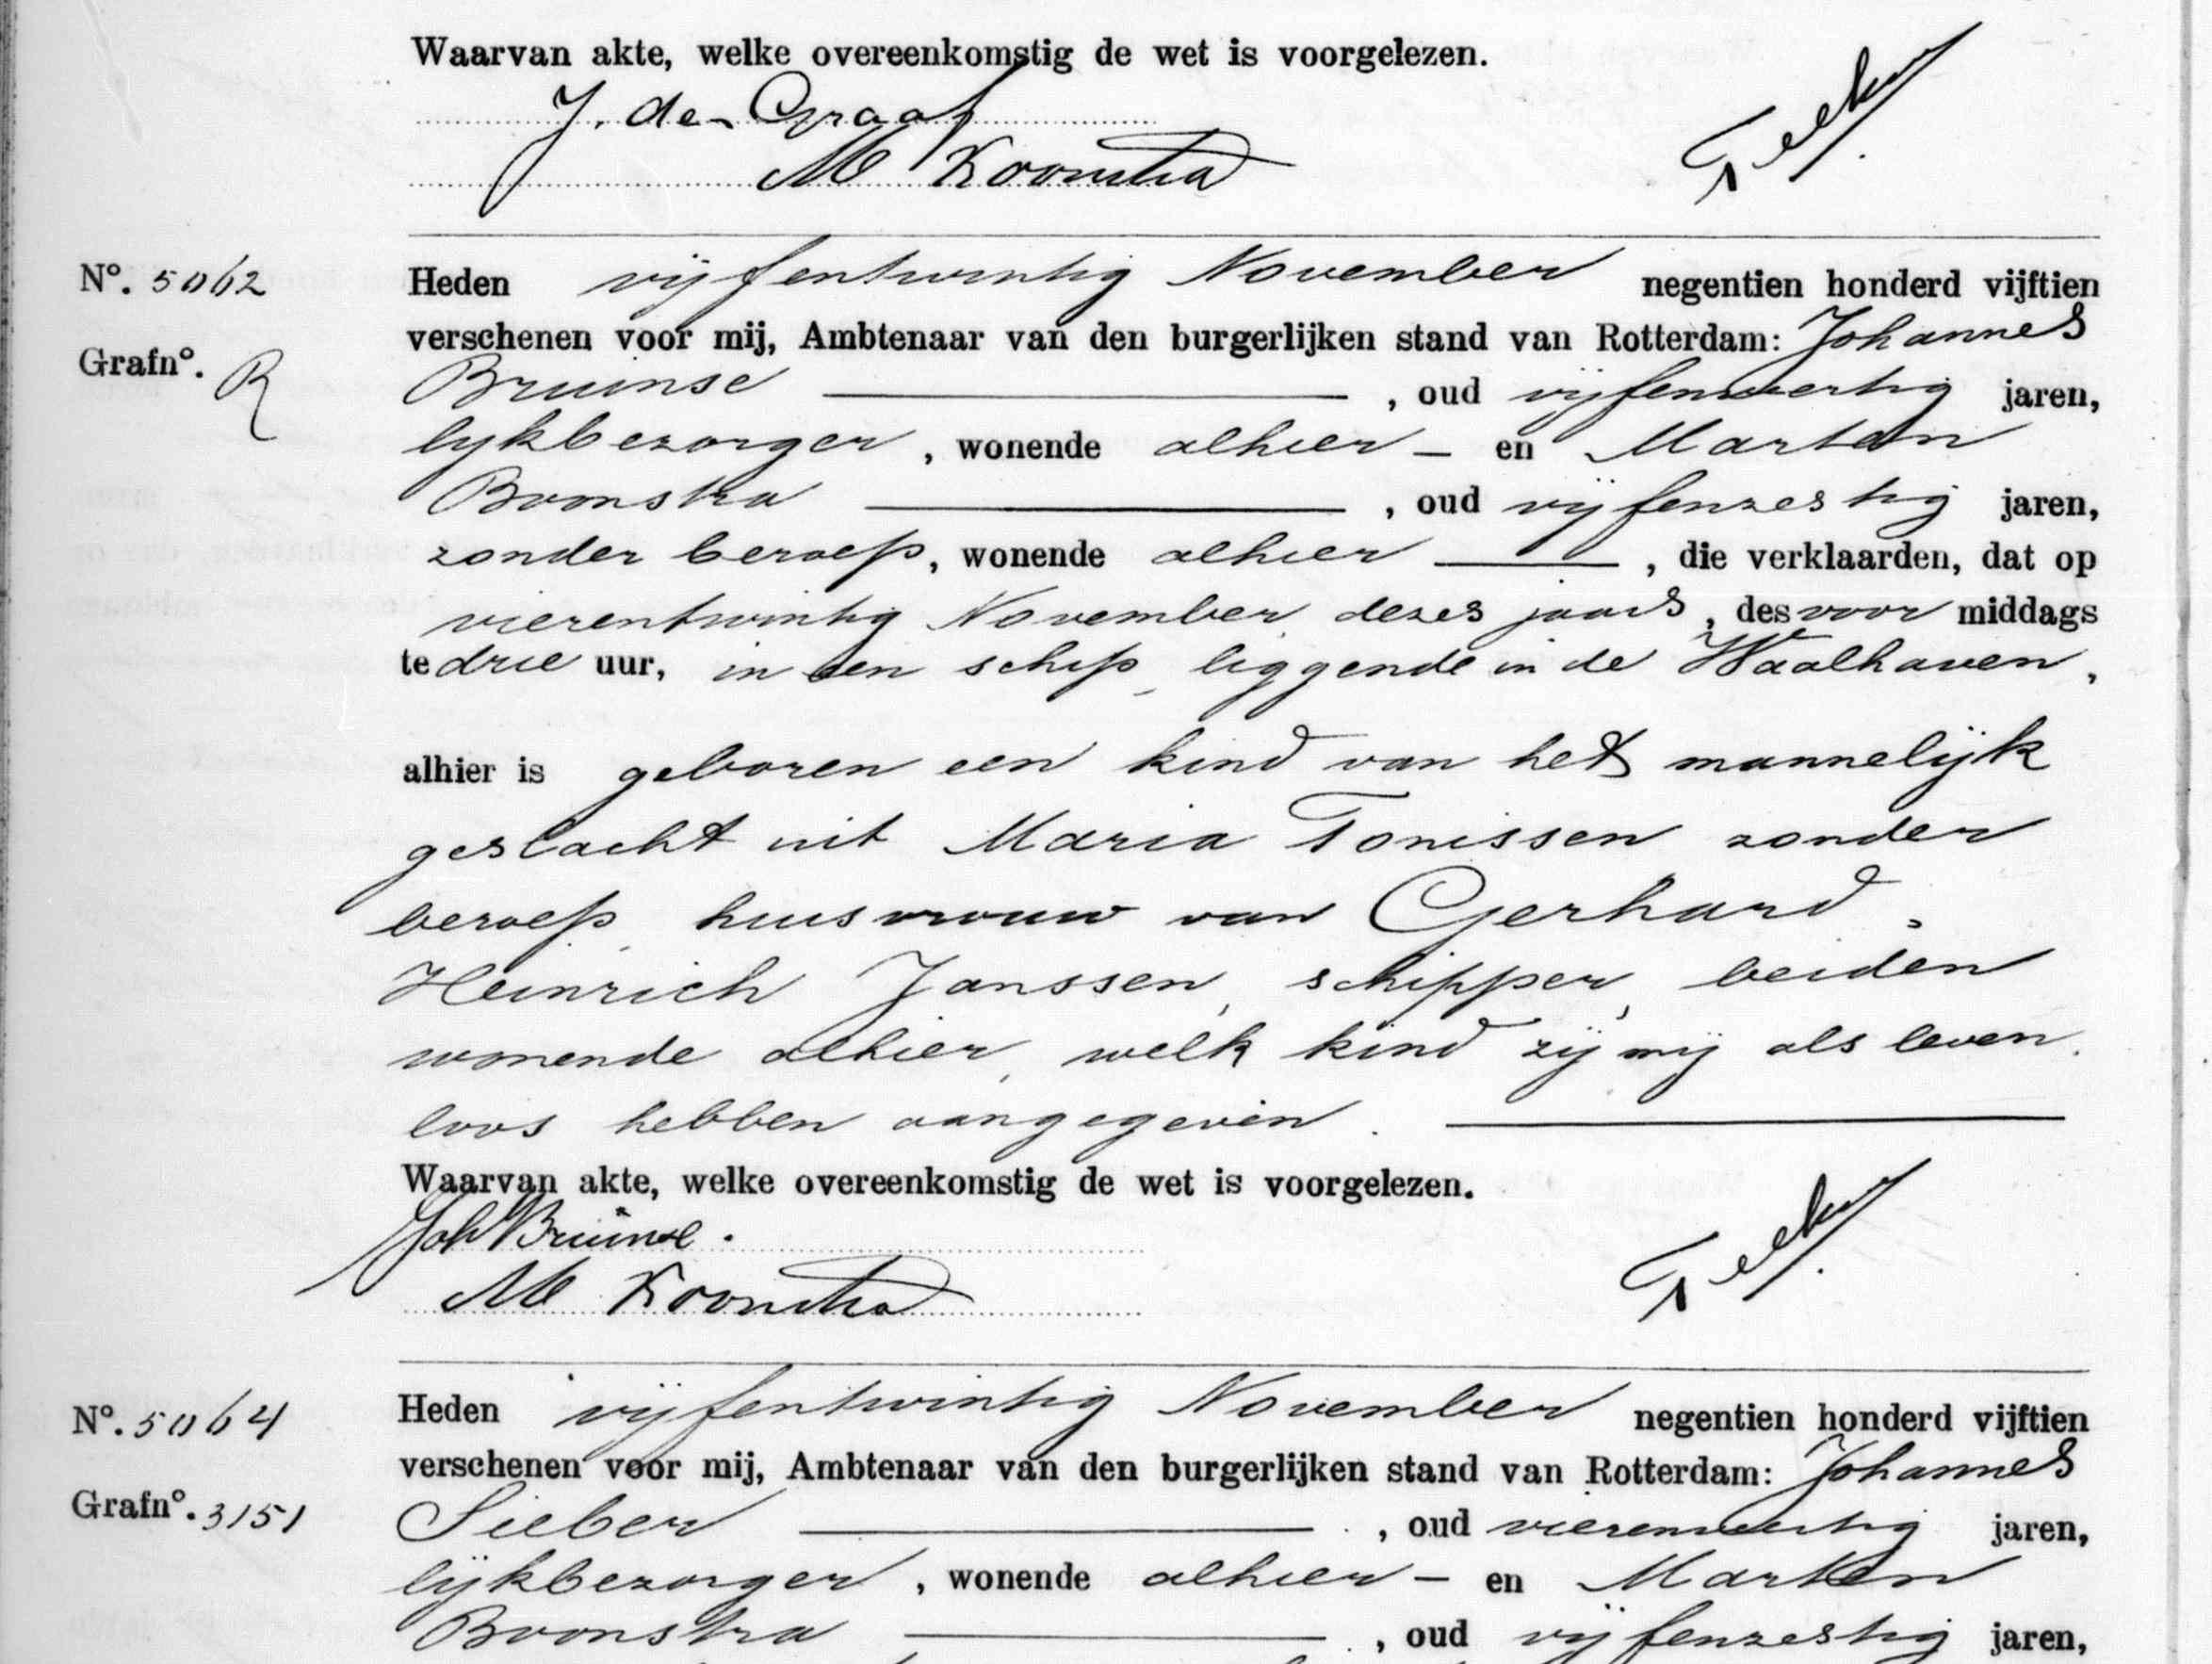 Waarvan akte, welke overeenkomstig de wet is voorgelezen.
J. de Graaf
M
Nº. 5062
Heden vijfentwintig November negentien honderd vijftien
Grafnº. R
verschenen voor mij, Ambtenaar van den burgerlijken stand van Rotterdam: Johannes
Bruinse , oud vijfenveertig jaren,
lijkbezorger, wonende alhier - en Marten
Boonstra , oud vijfenzestig jaren,
zonder beroep, wonende alhier , die verklaarden, dat op
vierentwintig November dezes jaars, des voor middags
te drie uur, in een schip, liggende in de Waalhaven,
alhier is geboren een kind van het mannelijk
geslacht uit Maria Tonissen zonder
beroep, huisvrouw van Gerhard
Heinrich Janssen, schipper, beiden
wonende alhier, welk kind zij mij als leven
loos hebben aangegeven.
Waarvan akte, welke overeenkomstig de wet is voorgelezen.
Joh Bruinse.
M
Nº. 5064
Heden vijfentwintig November negentien honderd vijftien
Grafnº. 3151
verschenen voor mij, Ambtenaar van den burgerlijken stand van Rotterdam: Johannes
Sieber , oud vierenveertig jaren,
lijkbezorger, wonende alhier - en Marten
Boonstra , oud vijfenzestig jaren,